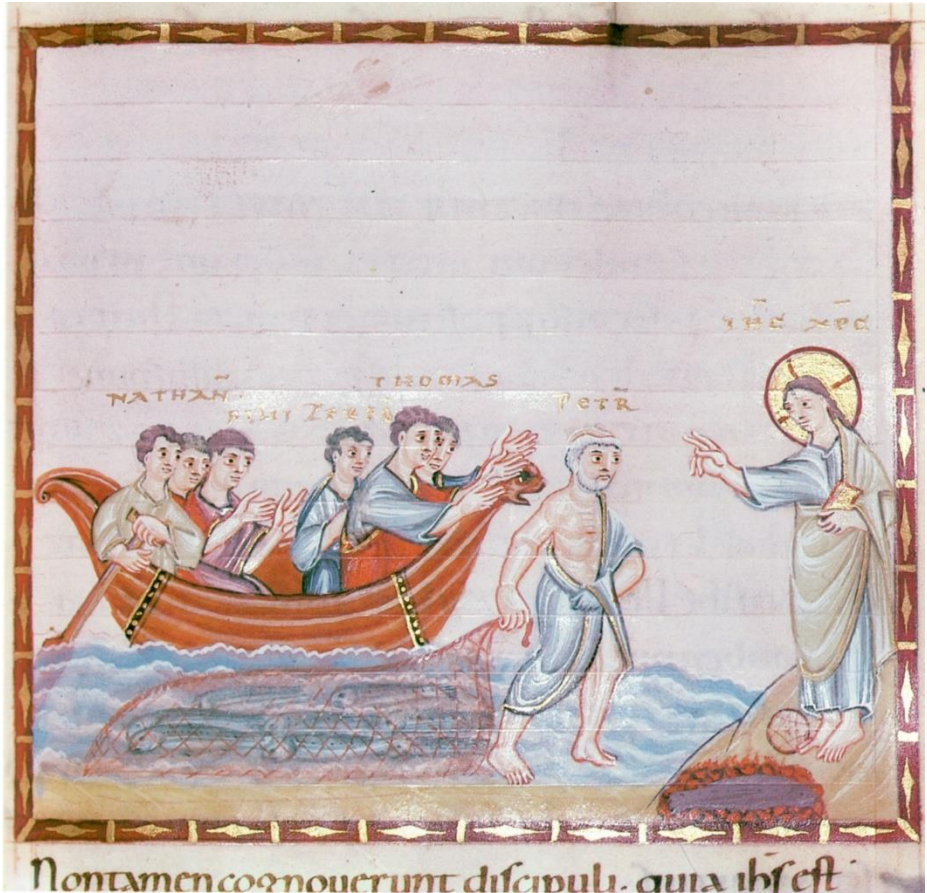 IHC XPC
THOMAS
NATHAN̄
FILII ZEBED
PETR̄
Non tamen cognouerunt discipuli. quia ih̄s est